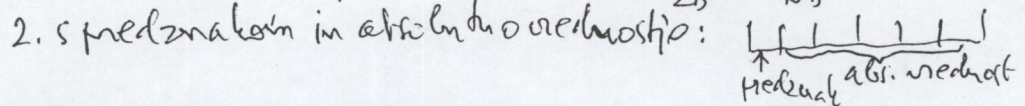 2. s predznakom in absolutno vrednostjo:
predznak
abs. vrednost